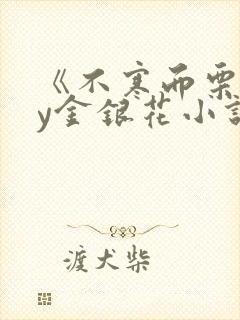 《不寒而栗
y金银花小说
渡犬柴